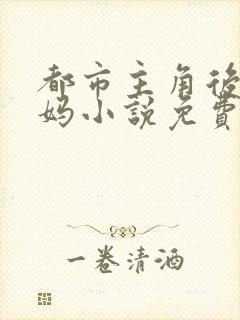 都市主角後
妈小說免費
一卷清酒